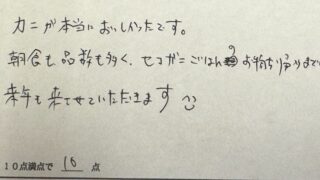 カニが本当においしかったです。
朝食も品数も多く、セコガニごはんのお持ち帰りまで
来年も来させていただきます
10点満点で 10 点